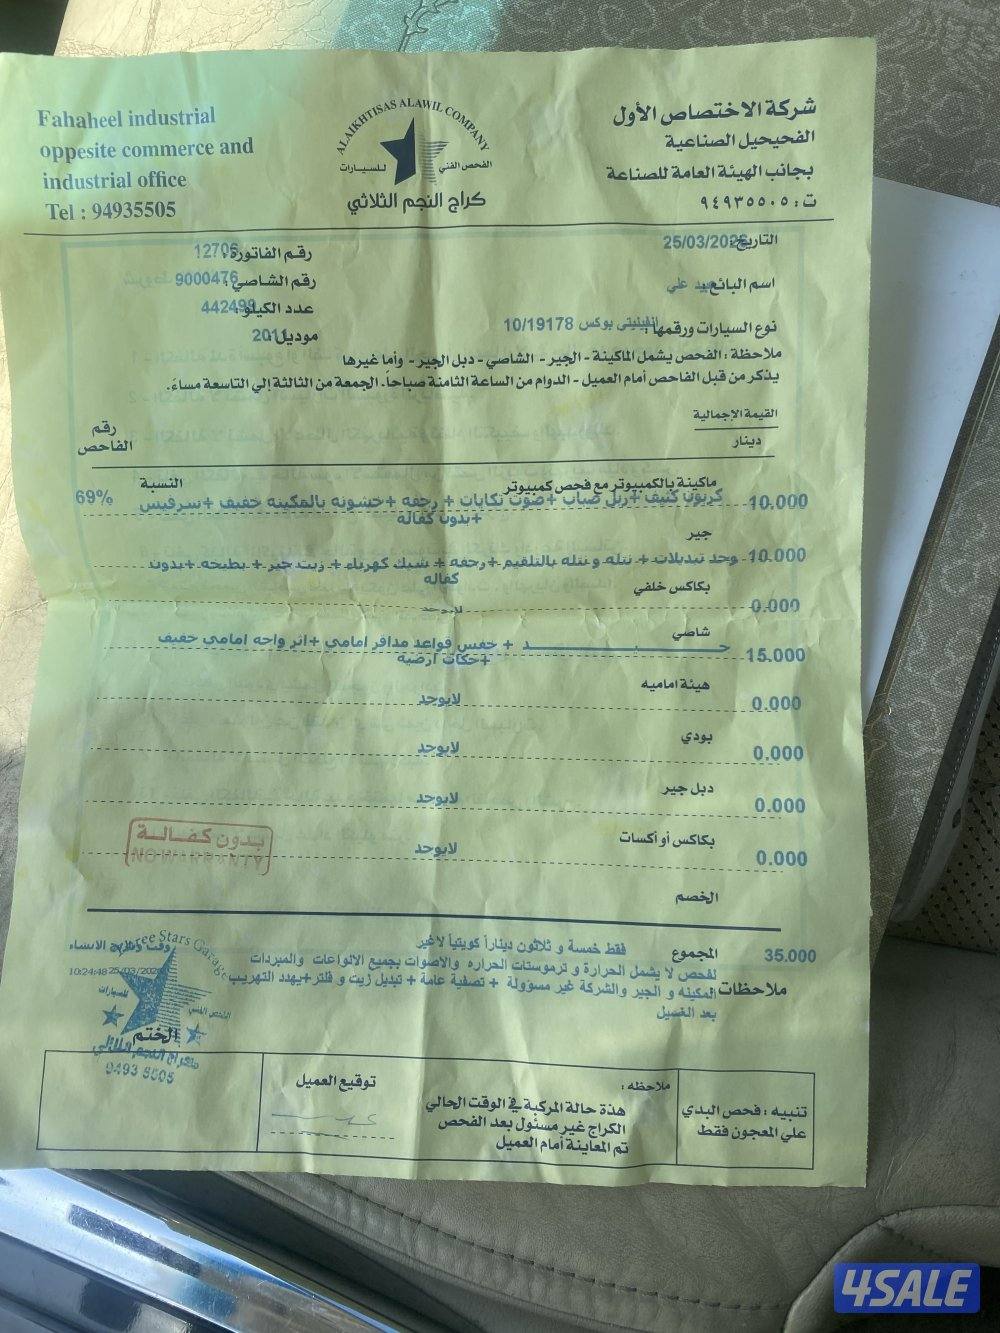 Fahaheel industrial
oppesite commerce and
industrial office
Tel : 94935505
ALAIKHTISAS ALAWIL COMPANY
الفحص الفني للسيارات
كراج النجم الثلاثي
شركة الاختصاص الأول
الفحيحيل الصناعية
بجانب الهيئة العامة للصناعة
ت : ٩٤٩٣٥٥٠٥
التاريخ: 25/03/2026
رقم الفاتورة: 12706
اسم البائع: عيد علي
رقم الشاصي: 9000476
عدد الكيلو: 442499
نوع السيارات ورقمها: انفينيتي بوكس 10/19178
موديل: 2011
ملاحظة : الفحص يشمل الماكينة - الجير - الشاصي - دبل الجير - وأما غيرها
يذكر من قبل الفاحص أمام العميل - الدوام من الساعة الثامنة صباحاً. الجمعة من الثالثة إلي التاسعة مساءً.
القيمة الإجمالية
دينار
رقم
الفاحص
ماكينة بالكمبيوتر مع فحص كمبيوتر
النسبة
10.000 كربون كثيف + ربل صباب + صوت تكايات + رجفه + خشونه بالمكينه خفيف + سرفيس 69%
+بدون كفالة
جير
10.000 وحد تبديلات + نتله و نتله بالتلقيم + رجفه + شبك كهرباء + زيت جير + بطيحه + بدون
كفاله
بكاكس خلفي
0.000 لايوجد
شاصي
15.000 جـــــيـــــد + خفس قواعد مدافر امامي + اثر واجه امامي خفيف
+حكات ارضية
هيئة اماميه
0.000 لايوجد
بودي
0.000 لايوجد
دبل جير
0.000 لايوجد
بكاكس أو أكسات
0.000 لايوجد
بدون كفالة
NO WARRANTY
الخصم
35.000 المجموع فقط خمسة و ثلاثون ديناراً كويتياً لاغير
وقت وتاريخ الانشاء
10:24:48 25/03/2026
ملاحظات
لفحص لا يشمل الحرارة و ترموستات الحراره والاصوات بجميع الانواعات والمبردات
المكينه و الجير والشركة غير مسؤولة + تصفية عامة + تبديل زيت و فلتر+يهدد التهريب
بعد الغسيل
Three Stars Garage
الفحص الفني للسيارات
الختم
كراج النجم الثلاثي
9493 5505
تنبيه : فحص البدي
علي المعجون فقط
ملاحظه :
هذة حالة المركبة في الوقت الحالي
الكراج غير مسئول بعد الفحص
تم المعاينة أمام العميل
توقيع العميل
4SALE